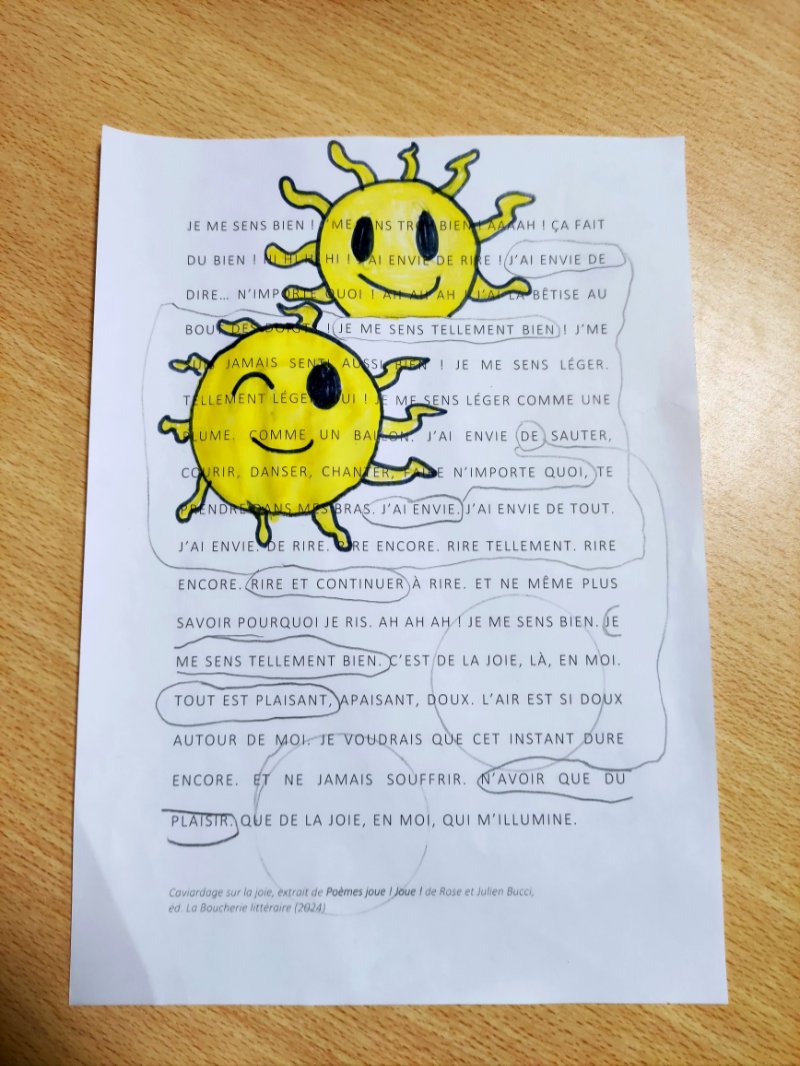 JE ME SENS BIEN ! J'ME SENS TROP BIEN ! AAAAH ! ÇA FAIT
DU BIEN ! HI HI HI HI ! J'AI ENVIE DE RIRE ! J'AI ENVIE DE
DIRE... N'IMPORTE QUOI ! AH AH AH ! J'AI LA BÊTISE AU
BOUT DES DOIGTS ! JE ME SENS TELLEMENT BIEN ! J'ME
SUIS JAMAIS SENTI AUSSI BIEN ! JE ME SENS LÉGER.
TELLEMENT LÉGER, OUI ! JE ME SENS LÉGER COMME UNE
PLUME. COMME UN BALLON. J'AI ENVIE DE SAUTER,
COURIR, DANSER, CHANTER, FAIRE N'IMPORTE QUOI, TE
PRENDRE DANS MES BRAS. J'AI ENVIE. J'AI ENVIE DE TOUT.
J'AI ENVIE. DE RIRE. RIRE ENCORE. RIRE TELLEMENT. RIRE
ENCORE. RIRE ET CONTINUER À RIRE. ET NE MÊME PLUS
SAVOIR POURQUOI JE RIS. AH AH AH ! JE ME SENS BIEN. JE
ME SENS TELLEMENT BIEN. C'EST DE LA JOIE, LÀ, EN MOI.
TOUT EST PLAISANT, APAISANT, DOUX. L'AIR EST SI DOUX
AUTOUR DE MOI. JE VOUDRAIS QUE CET INSTANT DURE
ENCORE. ET NE JAMAIS SOUFFRIR. N'AVOIR QUE DU
PLAISIR. QUE DE LA JOIE, EN MOI, QUI M'ILLUMINE.
Caviardage sur la joie, extrait de Poèmes joue ! Joue ! de Rose et Julien Bucci,
éd. La Boucherie littéraire (2024)